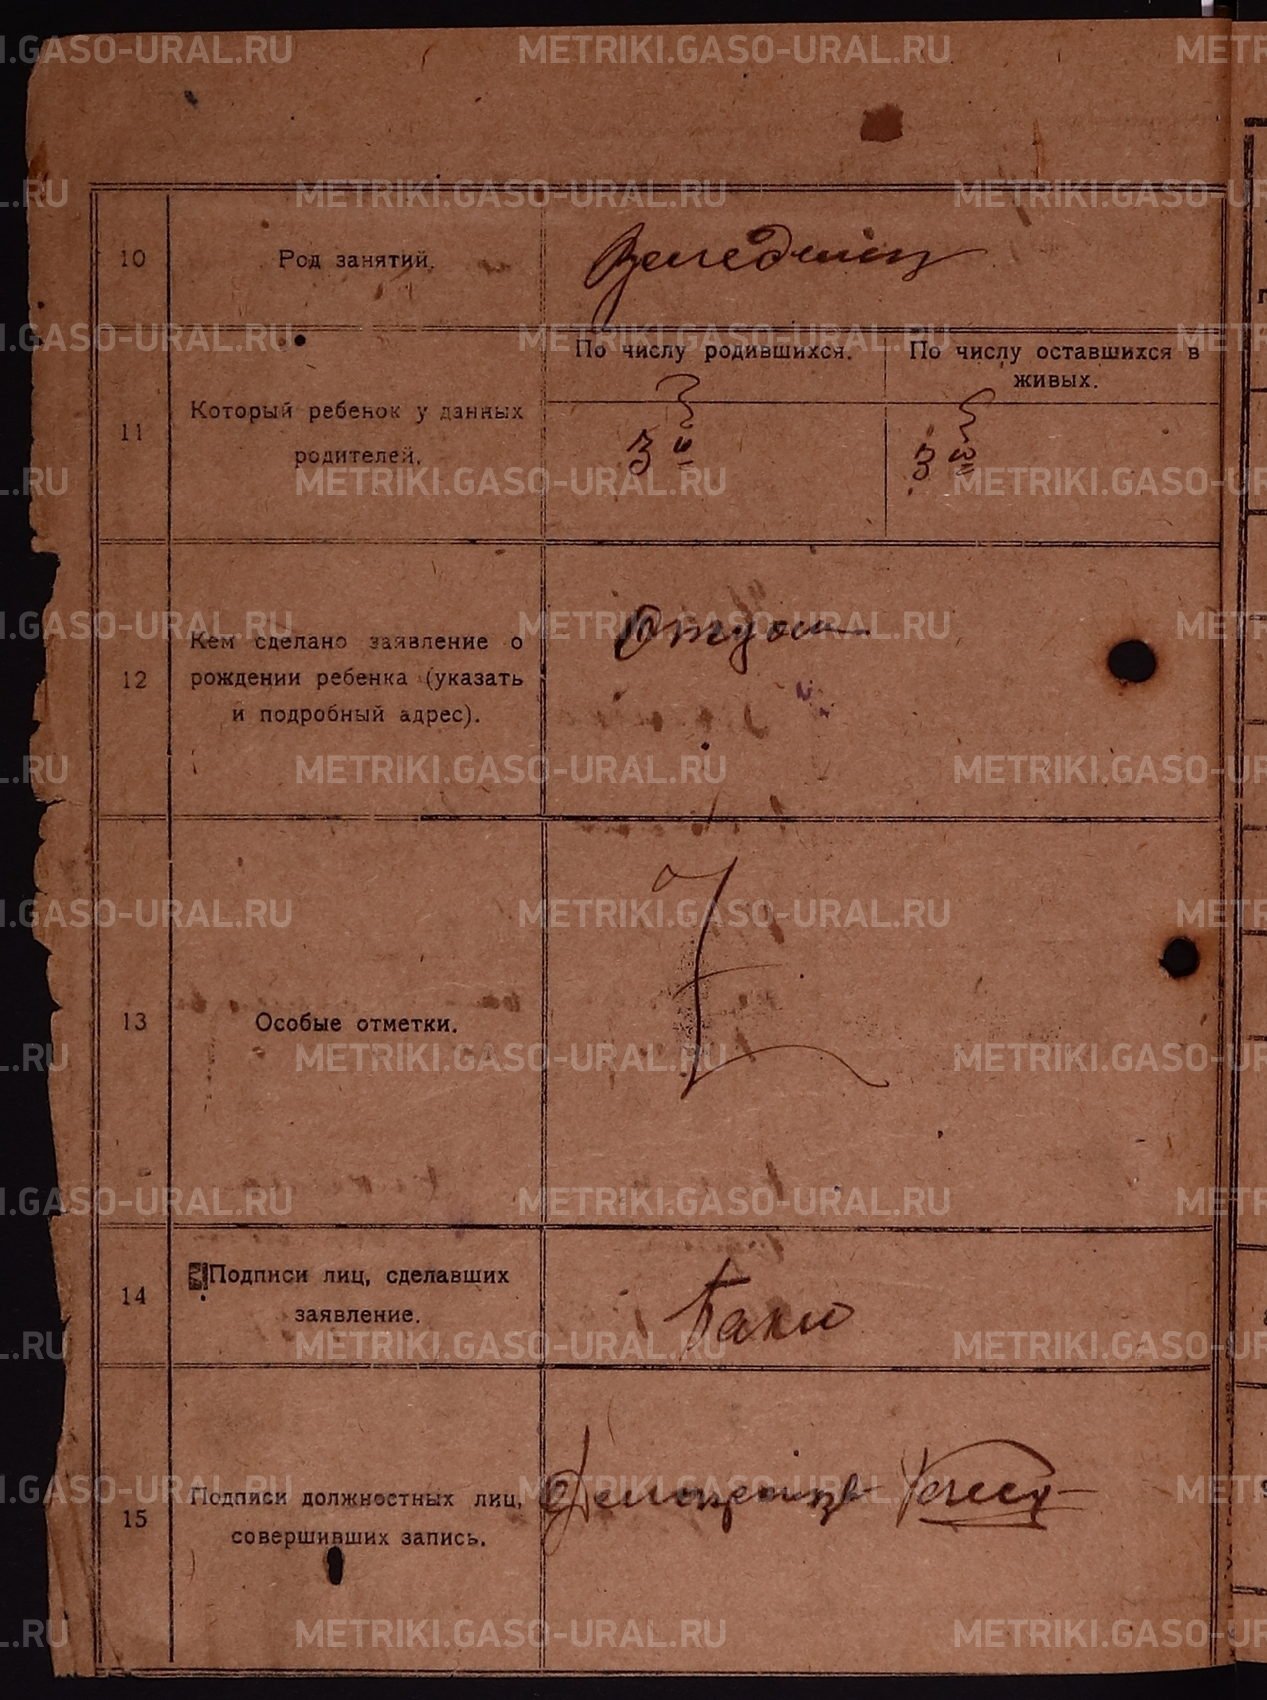 10
Род занятий.
Земледелец
11
Который ребенок у данных
родителей.
По числу родившихся.
По числу оставшихся в
живых.
3й
3й
12
Кем сделано заявление о
рождении ребенка (указать
и подробный адрес).
Отцом
13
Особые отметки.
14
Подписи лиц, сделавших
заявление.
15
Подписи должностных лиц,
совершивших запись.
Делопроизв
METRIKI.GASO-URAL.RU